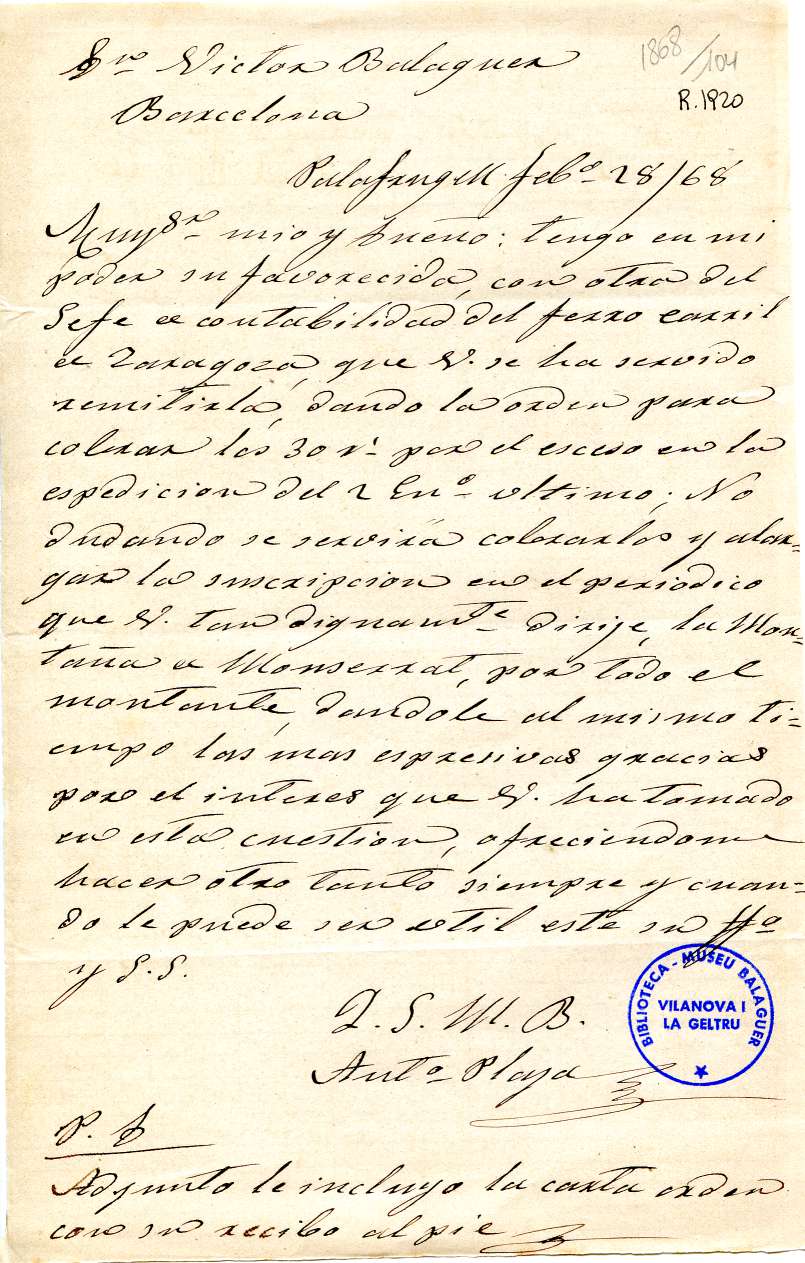 Sr. Victor Balaguer
Barcelona
1868/104
R.1920
Palafrugell Febº 28/68
Muy Sr mio y bueno: tengo en mi
poder su favorecida, con otra del
Gefe de contabilidad del ferro carril
de Zaragoza, que V. se ha servido
remitirla, dando la orden para
cobrar los 30 rs. por el esceso en la
espedicion del 2 Enº ultimo; No
dudando se servirá cobrarlos y alar-
gar la suscripcion en el periodico
que V. tan dignamte dirije, la Mon-
taña de Monserrat, por todo el
montante, dandole al mismo ti-
empo las mas espresivas gracias
por el interes que V. ha tomado
en esta cuestion, ofreciendome
hacer otro tanto siempre y cuan-
do le puede ser util este su
y S.S.
Q. S. M. B.
Antº Plaja
BIBLIOTECA - MUSEU BALAGUER
VILANOVA I
LA GELTRU
P. D
Adjunto le incluyo la carta orden
con su recibo al pie